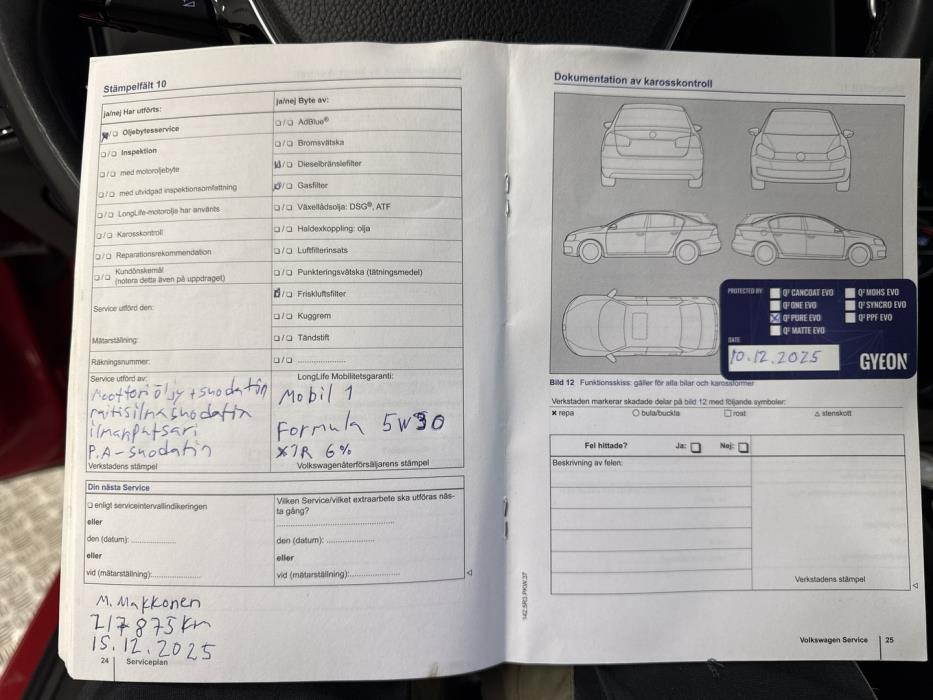 Stämpelfält 10
ja/nej Har utförts:
☒/☐ Oljebytesservice
☐/☐ Inspektion
☐/☐ med motoroljebyte
☐/☐ med utvidgad inspektionsomfattning
☐/☐ LongLife-motorolja har använts
☐/☐ Karosskontroll
☐/☐ Reparationsrekommendation
☐/☐ Kundönskemål
(notera detta även på uppdraget)
Service utförd den:
Mätarställning:
Räkningsnummer:
ja/nej Byte av:
☐/☐ AdBlue®
☐/☐ Bromsvätska
☒/☐ Dieselbränslefilter
☒/☐ Gasfilter
☐/☐ Växellådsolja: DSG®, ATF
☐/☐ Haldexkoppling: olja
☐/☐ Luftfilterinsats
☐/☐ Punkteringsvätska (tätningsmedel)
☒/☐ Friskluftsfilter
☐/☐ Kuggrem
☐/☐ Tändstift
☐/☐ .....................
Service utförd av:
Moottoriöljy + suodatin
raitisilmasuodatin
ilmanputsari
P.A-suodatin
Verkstadens stämpel
LongLife Mobilitetsgaranti:
Mobil 1
Formula 5W30
Volkswagenåterförsäljarens stämpel
Din nästa Service
☐ enligt serviceintervallindikeringen
eller
den (datum): ...................
eller
vid (mätarställning):.....................
Vilken Service/vilket extraarbete ska utföras näs-
ta gång?
.....................................................
den (datum): ...................
eller
vid (mätarställning):.....................
M. Makkonen
217875km
15.12.2025
24 Serviceplan
Dokumentation av karosskontroll
PROTECTED BY
Q² CANCOAT EVO
Q² ONE EVO
Q² PURE EVO
Q² MATTE EVO
Q² MOHS EVO
Q² SYNCRO EVO
Q² PPF EVO
DATE
10.12.2025
GYEON
Bild 12 Funktionsskiss: gäller för alla bilar och karossformer
Verkstaden markerar skadade delar på bild 12 med följande symboler:
× repa ○ bula/buckla ☐ rost △ stenskott
Fel hittade? Ja: ☐ Nej: ☐
Beskrivning av felen:
Verkstadens stämpel
142.5R3.PKW.37
Volkswagen Service 25